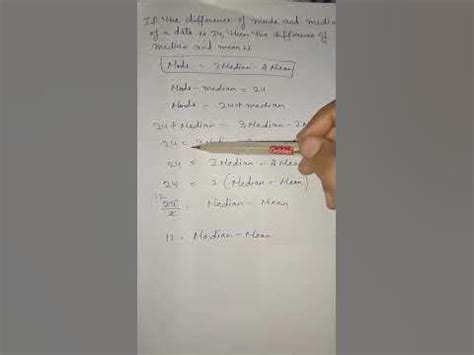 If the difference of mode and median
of a data is 24, then the difference of
median and mean is
Mode = 3Median - 2Mean
Mode - median = 24
Mode = 24 + median
24 + Median = 3Median - 2M
24 =
24 = 2Median - 2Mean
24 = 2 (Median - Mean)
12
24/2 = Median - Mean
12 = Median - Mean
Golden